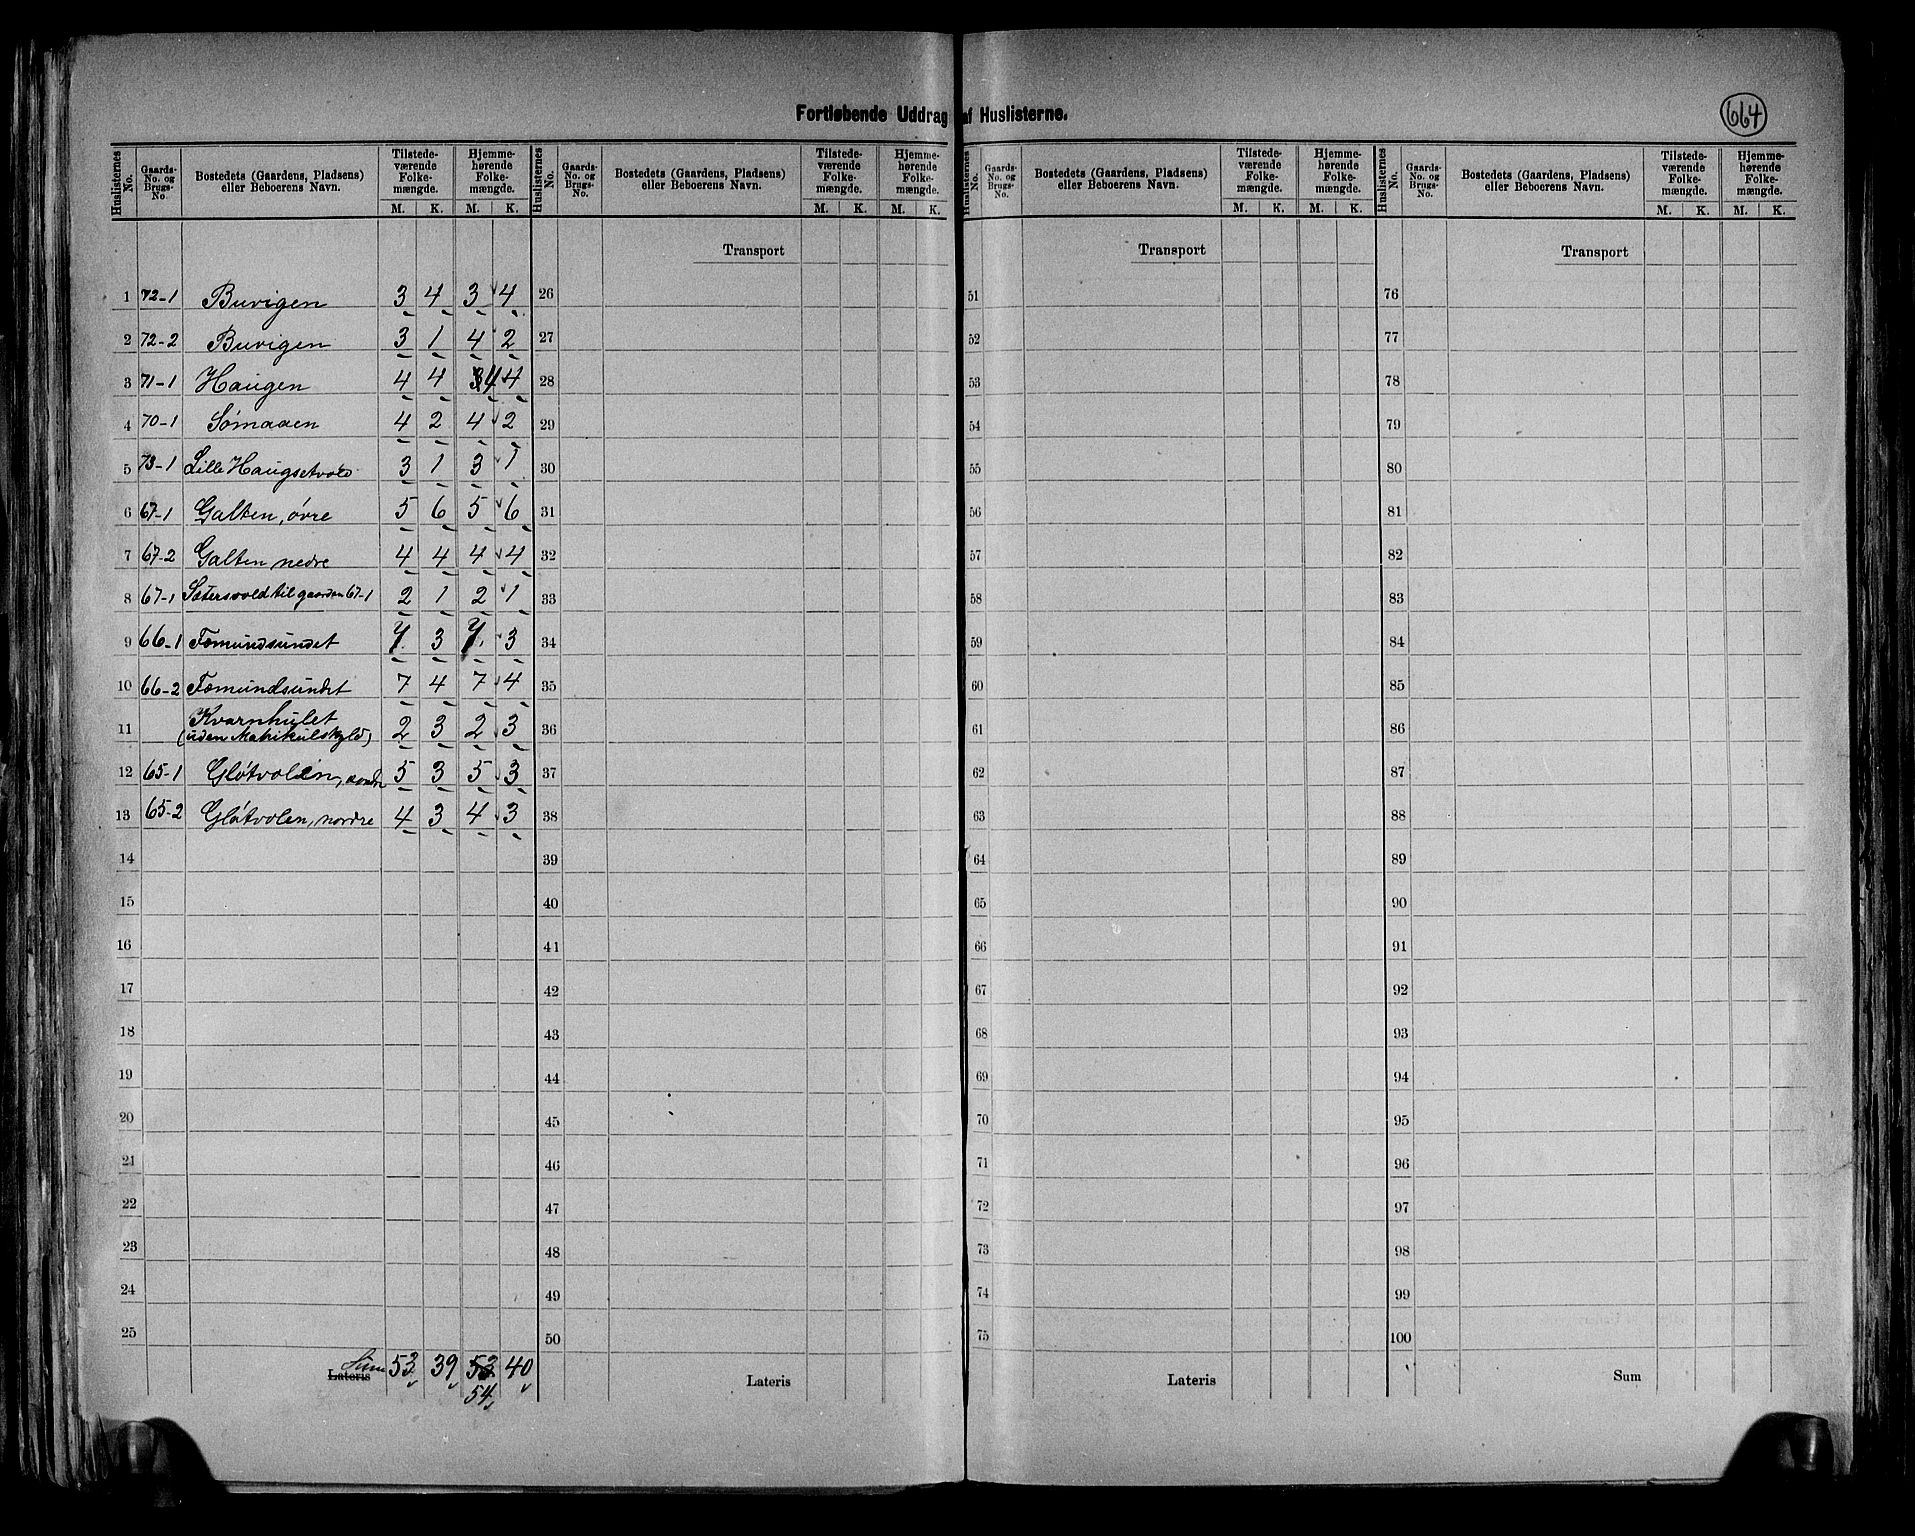 Fortløbende Uddrag af Huslisterne.
664
Huslisternes No. | Gaards-No. og Brugs-No. | Bostedets (Gaardens, Pladsens) eller Beboerens Navn. | Tilstedeværende Folkemængde. M. K. | Hjemmehørende Folkemængde. M. K.
Huslisternes No. | Gaards-No. og Brugs-No. | Bostedets (Gaardens, Pladsens) eller Beboerens Navn. | Tilstedeværende Folkemængde. M. K. | Hjemmehørende Folkemængde. M. K.
Huslisternes No. | Gaards-No. og Brugs-No. | Bostedets (Gaardens, Pladsens) eller Beboerens Navn. | Tilstedeværende Folkemængde. M. K. | Hjemmehørende Folkemængde. M. K.
Huslisternes No. | Gaards-No. og Brugs-No. | Bostedets (Gaardens, Pladsens) eller Beboerens Navn. | Tilstedeværende Folkemængde. M. K. | Hjemmehørende Folkemængde. M. K.
Transport Transport Transport
1 72-1 Buvigen 3 4 3 4 26 51 76
2 72-2 Buvigen 3 1 4 2 27 52 77
3 71-1 Haugen 4 4 3 4 4 28 53 78
4 70-1 Sømaaen 4 2 4 2 29 54 79
5 73-1 Lille Haugsetvold 3 1 3 1 30 55 80
6 67-1 Galten, övre 5 6 5 6 31 56 81
7 67-2 Galten nedre 4 4 4 4 32 57 82
8 67-1 Sætersvold til gaarden 67-1 2 1 2 1 33 58 83
9 66-1 Fæmundsundet 7 3 7 3 34 59 84
10 66-2 Fæmundsundet 7 4 7 4 35 60 85
11 Kvarnhulet (uden Matrikulskyld) 2 3 2 3 36 61 86
12 65-1 Gløtvolen, søndre 5 3 5 3 37 62 87
13 65-2 Gløtvolen, nordre 4 3 4 3 38 63 88
14 39 64 89
15 40 65 90
16 41 66 91
17 42 67 92
18 43 68 93
19 44 69 94
20 45 70 95
21 46 71 96
22 47 72 97
23 48 73 98
24 49 74 99
25 50 75 100
Sum Lateris 53 39 53 40 Lateris Lateris Sum
54